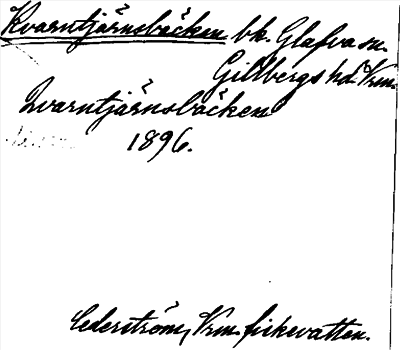 Kvarntjärnsbäcken bk. Glafva sn.
Gillbergs hd. Vrm.
Qvarntjärnsbäcken
1896.
Cederström, Vrm. fiskevatten.